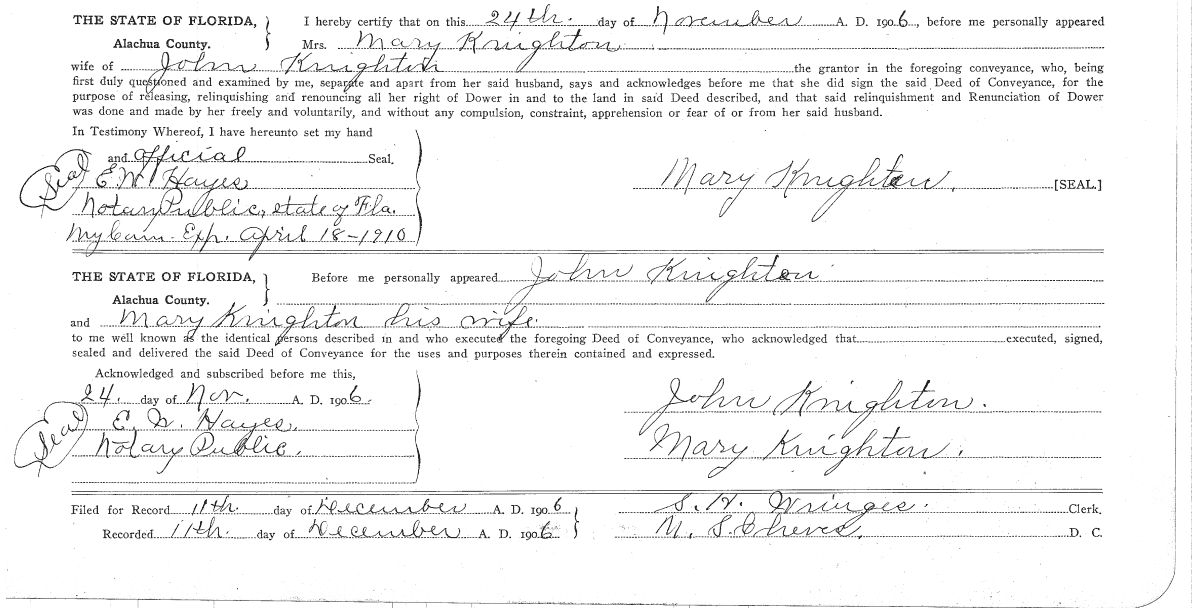 THE STATE OF FLORIDA, I hereby certify that on this 24th. day of November A. D. 1906, before me personally appeared
Alachua County. Mrs. Mary Knighton
wife of John Knighton the grantor in the foregoing conveyance, who, being
first duly questioned and examined by me, separate and apart from her said husband, says and acknowledges before me that she did sign the said Deed of Conveyance, for the
purpose of releasing, relinquishing and renouncing all her right of Dower in and to the land in said Deed described, and that said relinquishment and Renunciation of Dower
was done and made by her freely and voluntarily, and without any compulsion, constraint, apprehension or fear of or from her said husband.
In Testimony Whereof, I have hereunto set my hand
and official Seal.
Seal E. W. Hayes
Mary Knighton. [SEAL.]
Notary Public, State of Fla.
My Com. Exp. April 18-1910
THE STATE OF FLORIDA, Before me personally appeared John Knighton
Alachua County.
and Mary Knighton his wife.
to me well known as the identical persons described in and who executed the foregoing Deed of Conveyance, who acknowledged that executed, signed,
sealed and delivered the said Deed of Conveyance for the uses and purposes therein contained and expressed.
Acknowledged and subscribed before me this,
24. day of Nov. A. D. 1906.
John Knighton.
Seal E. W. Hayes.
Notary Public.
Mary Knighton.
Filed for Record 11th. day of December A. D. 1906 S. H. Clerk.
Recorded 11th. day of December A. D. 1906 S. Cheves. D. C.